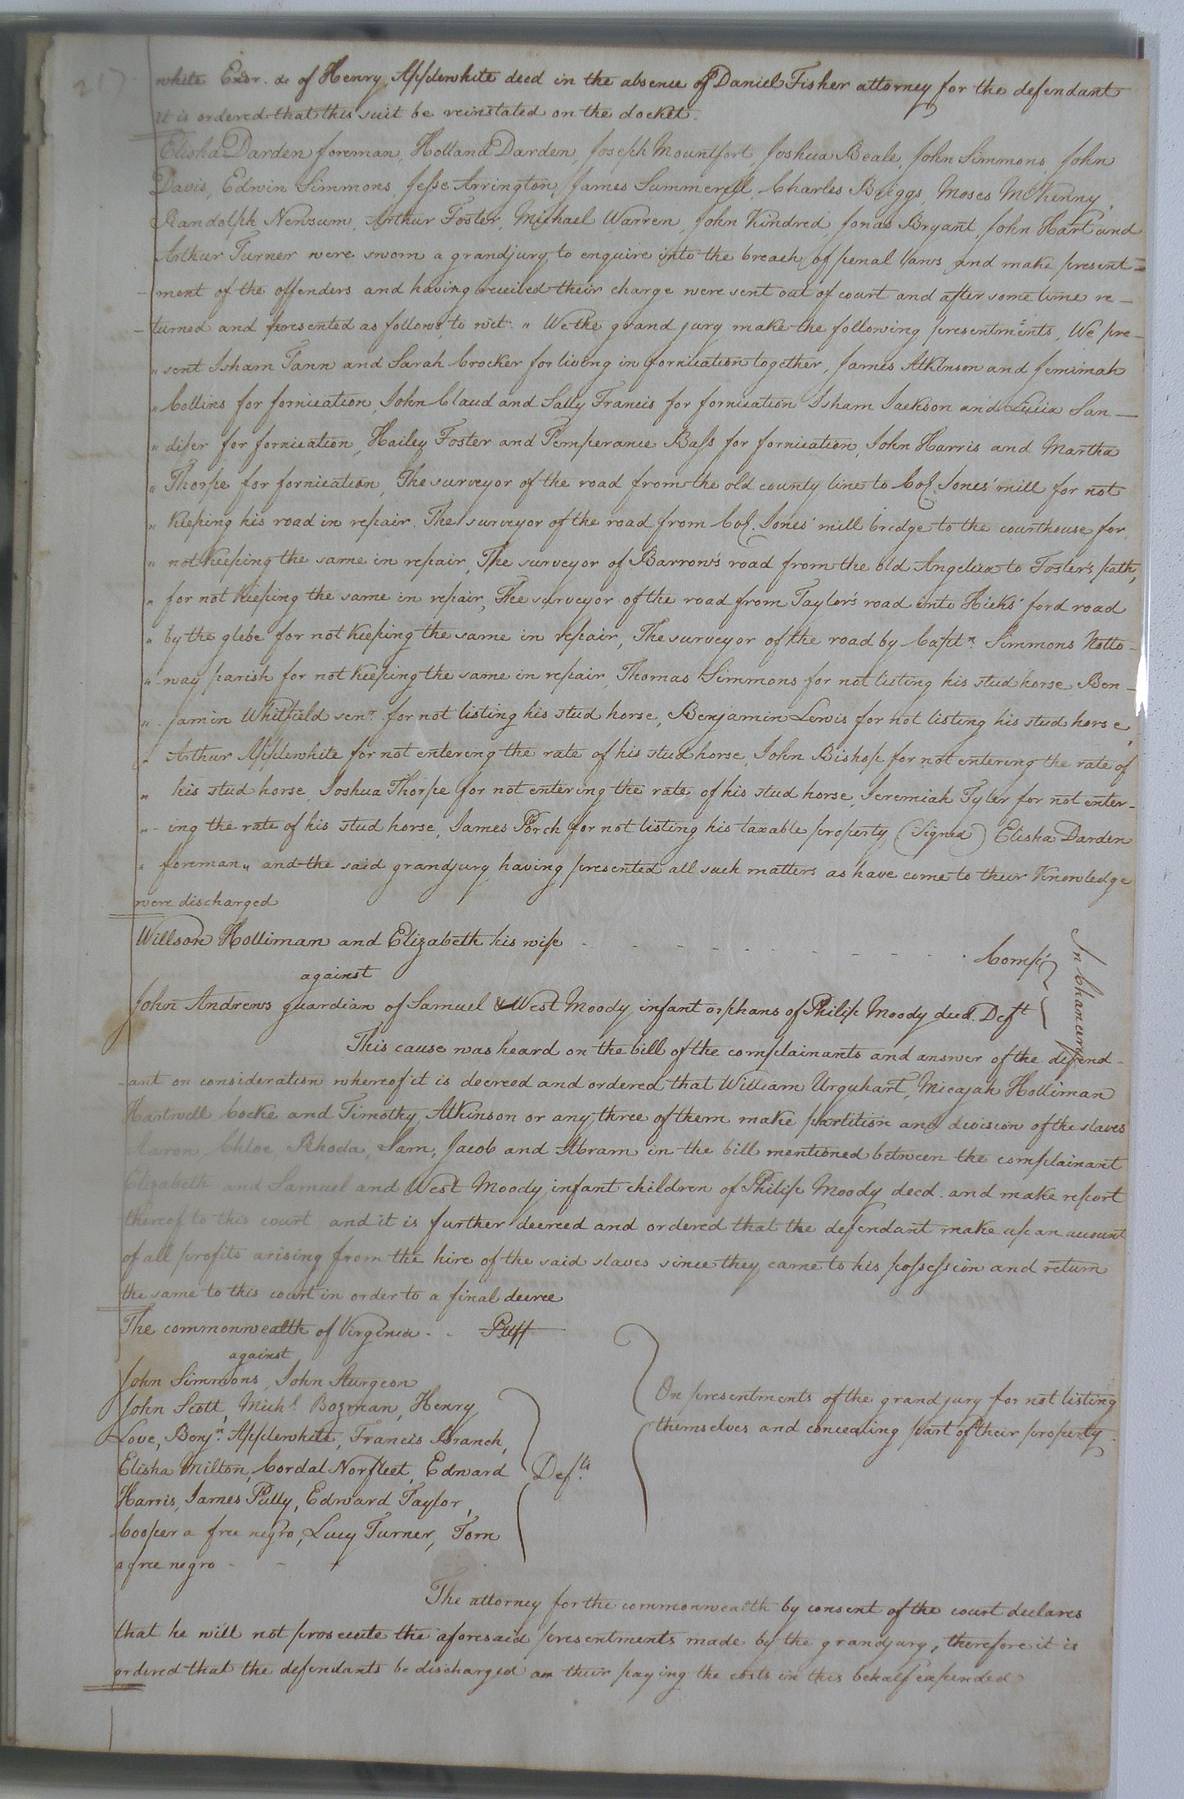 217
white Exor. &c of Henry Applewhite decd in the absence of Daniel Fisher attorney for the defendant
it is ordered that this suit be reinstated on the docket.
Elisha Darden foreman, Holland Darden, Joseph Mountfort, Joshua Beale, John Simmons, John
Davis, Edwin Simmons, Jesse Arrington, James Summerell, Charles Briggs, Moses McKenny,
Randolph Newsum, Arthur Foster, Michael Warren, John Kindred, Jonas Bryant, John Hart and
Arthur Turner were sworn a grandjury to enquire into the breach of penal laws and make present=
ment of the offenders and having received their charge were sent out of court and after some time re-
turned and presented as follows to wit. " We the grand jury make the following presentments, We pre-
" sent Isham Tann and Sarah Crocker for living in fornication together, James Atkinson and Jemimah
" Collins for fornication, John Claud and Sally Francis for fornication Isham Jackson and Lucia San-
" difer for fornication, Hailey Foster and Temperance Bass for fornication, John Harris and Martha
" Thorpe for fornication, The surveyor of the road from the old county line to Col. Jones' mill for not
" keeping his road in repair. The surveyor of the road from Col. Jones' mill bridge to the courthouse for
" not keeping the same in repair, The surveyor of Barrow's road from the old Angelica to Foster's path,
" for not keeping the same in repair, The surveyor of the road from Taylor's road into Hicks' ford road
" by the glebe for not keeping the same in repair, The surveyor of the road by Captn. Simmons Notto-
" way parish for not keeping the same in repair, Thomas Simmons for not listing his stud horse Ben-
" jamin Whitfield senr. for not listing his stud horse, Benjamin Lewis for not listing his stud horse,
" Arthur Applewhite for not entering the rate of his stud horse, John Bishop for not entering the rate of
" his stud horse, Joshua Thorpe for not entering the rate of his stud horse, Jeremiah Tyler for not enter-
" ing the rate of his stud horse, James Porch for not listing his taxable property (Signed) Elisha Darden
" foreman" and the said grandjury having presented all such matters as have come to their Knowledge
were discharged
Willson Holliman and Elizabeth his wife - - - - - - - - - - Compts
against
In Chancery
John Andrews guardian of Samuel & West Moody infant orphans of Philip Moody decd. Deft
This cause was heard on the bill of the complainants and answer of the defend-
ant on consideration whereof it is decreed and ordered that William Urquhart, Micajah Holliman
Hartwell Cocke and Timothy Atkinson or any three of them make partition and division of the slaves
Aaron, Chloe, Rhoda, Sam, Jacob and Abram in the bill mentioned between the complainant
Elizabeth and Samuel and West Moody infant children of Philip Moody decd. and make report
thereof to this court and it is further decreed and ordered that the defendant make up an account
of all profits arising from the hire of the said slaves since they came to his possession and return
the same to this court in order to a final decree
The commonwealth of Virginia - - Plff
against
John Simmons, John Sturgeon
John Scott, Michl. Bozman, Henry
Love, Benjn. Applewhite, Francis Branch,
Elisha Milton, Cordal Norfleet, Edward
Harris, James Pully, Edward Taylor,
Cooper a free negro, Lucy Turner, Tom
a free negro - - -
Defts.
On presentments of the grandjury for not listing
themselves and concealing part of their property.
The attorney for the commonwealth by consent of the court declares
that he will not prosecute the aforesaid presentments made by the grandjury, therefore it is
ordered that the defendants be discharged on their paying the costs in this behalf expended